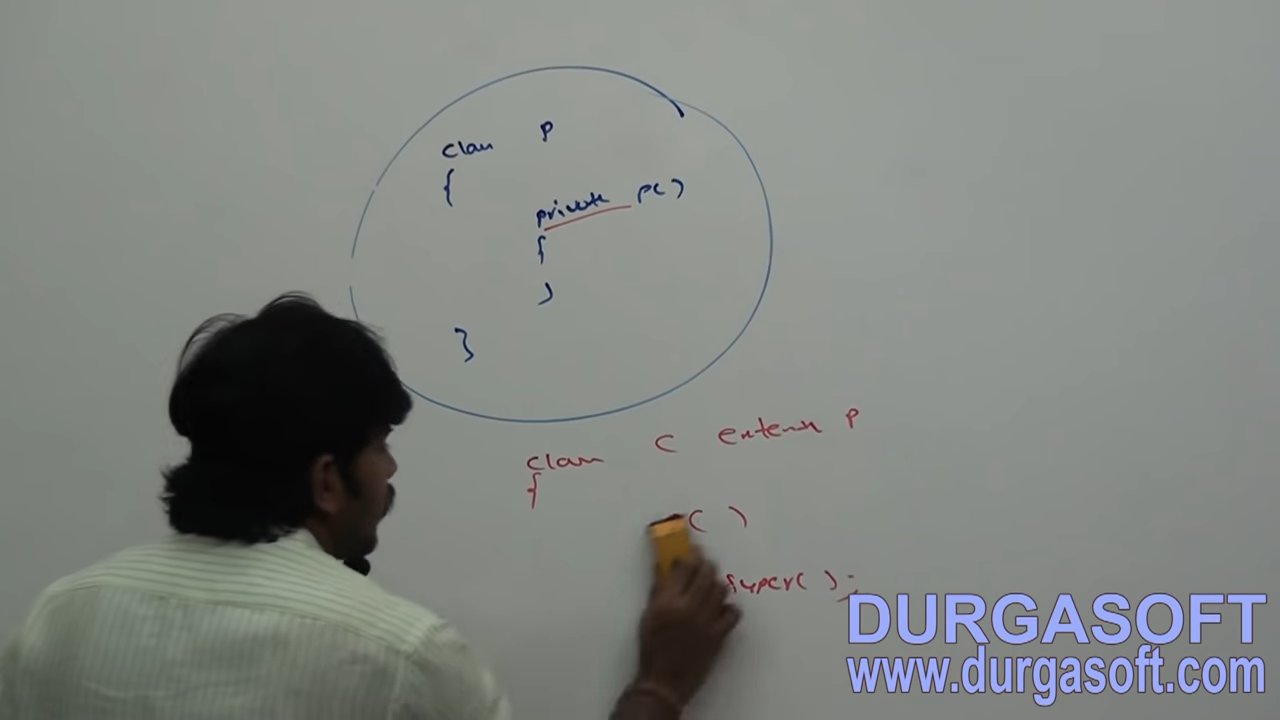 class P
{
private P()
{
}
}
class C extends P
{
( )
super( );
DURGASOFT
www.durgasoft.com